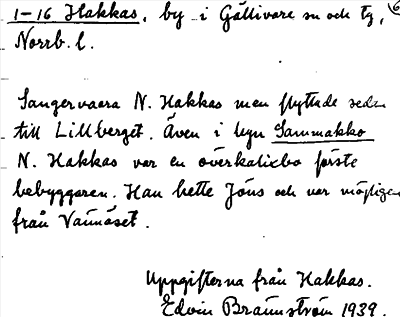 1-16 Hakkas, by i Gällivare sn och tg,
Norrb. l.
Sangervaara N. Hakkas men flyttade sedan
till Lillberget. Även i byn Sammakko
N. Hakkas var en överkalixbo förste
bebyggaren. Han hette Jöns och var möjligen
från Vännäset.
Uppgifterna från Hakkas.
Edvin Brännström 1939.